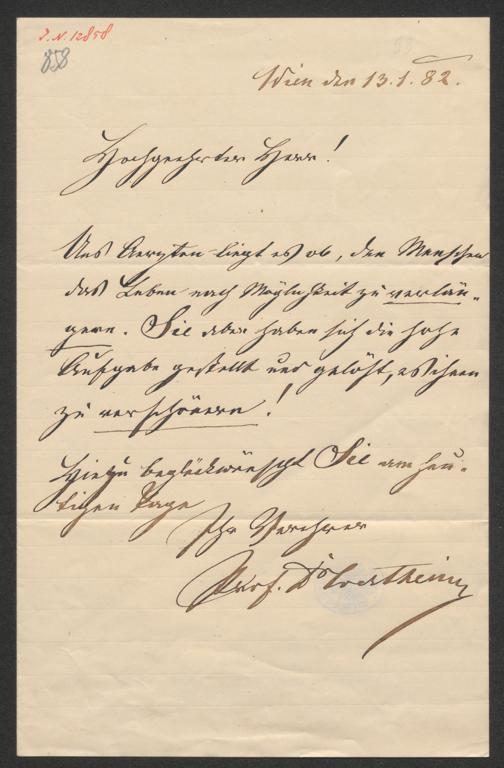 I.N. 12858
858
Wien den 13.1.82.
Hochgeehrter Herr!
Uns Aerzten liegt es ob, den Menschen
das Leben nach Möglichkeit zu verlän-
gern. Sie aber haben sich die hohe
Aufgabe gestellt und gelöst, es ihnen
zu verschönern!
Hiezu beglückwünscht Sie am heu-
tigen Tage
Ihr Verehrer
Prof. Dr Wertheim